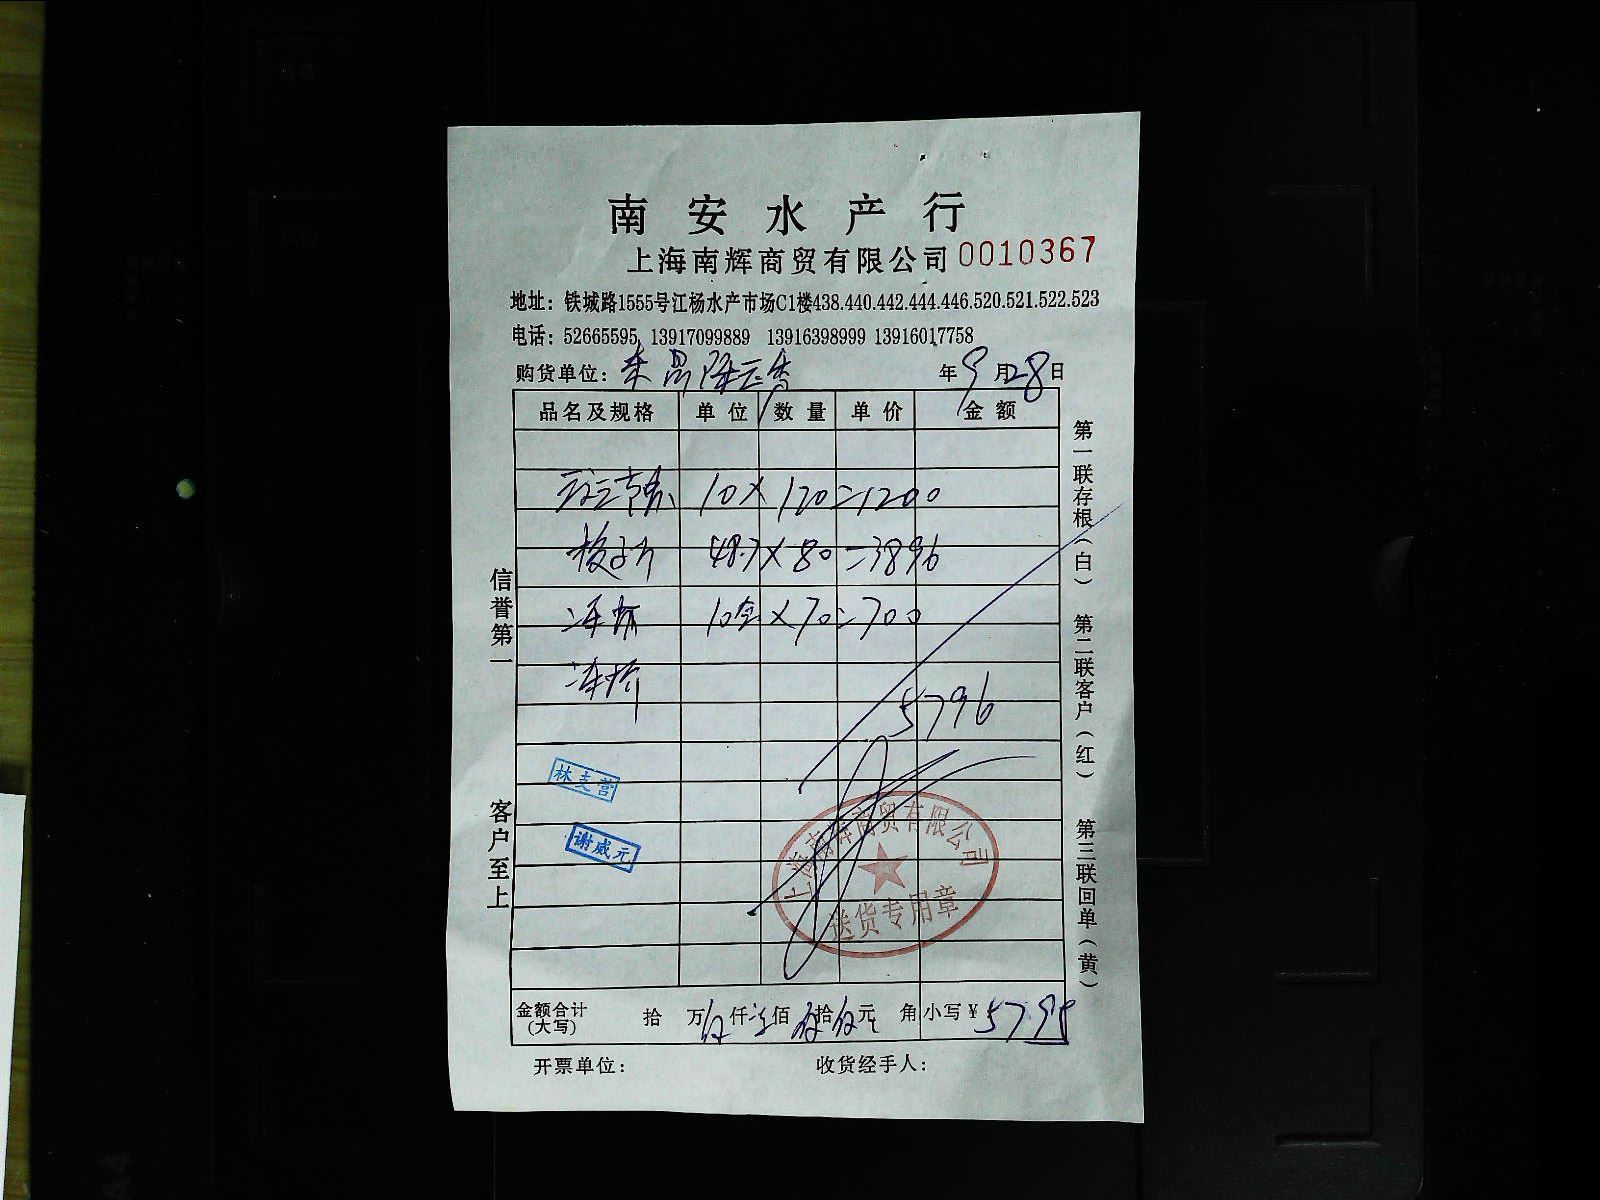 南安水产行
上海南辉商贸有限公司 0010367
地址：铁城路1555号江杨水产市场C1楼438.440.442.444.446.520.521.522.523
电话：52665595 13917099889 13916398999 13916017758
购货单位： 年 9 月 28 日
品名及规格 单位 数量 单价 金额
10 × 120 = 1200
48.7 × 80 = 3896
10盒 × 70 = 700
5796
林支营
谢咸元
上海南辉商贸有限公司
送货专用章
金额合计(大写) 拾 万 伍仟 佰 拾 伍元 角 小写¥ 5795
开票单位： 收货经手人：
信誉第一
客户至上
第一联存根（白）
第二联客户（红）
第三联回单（黄）